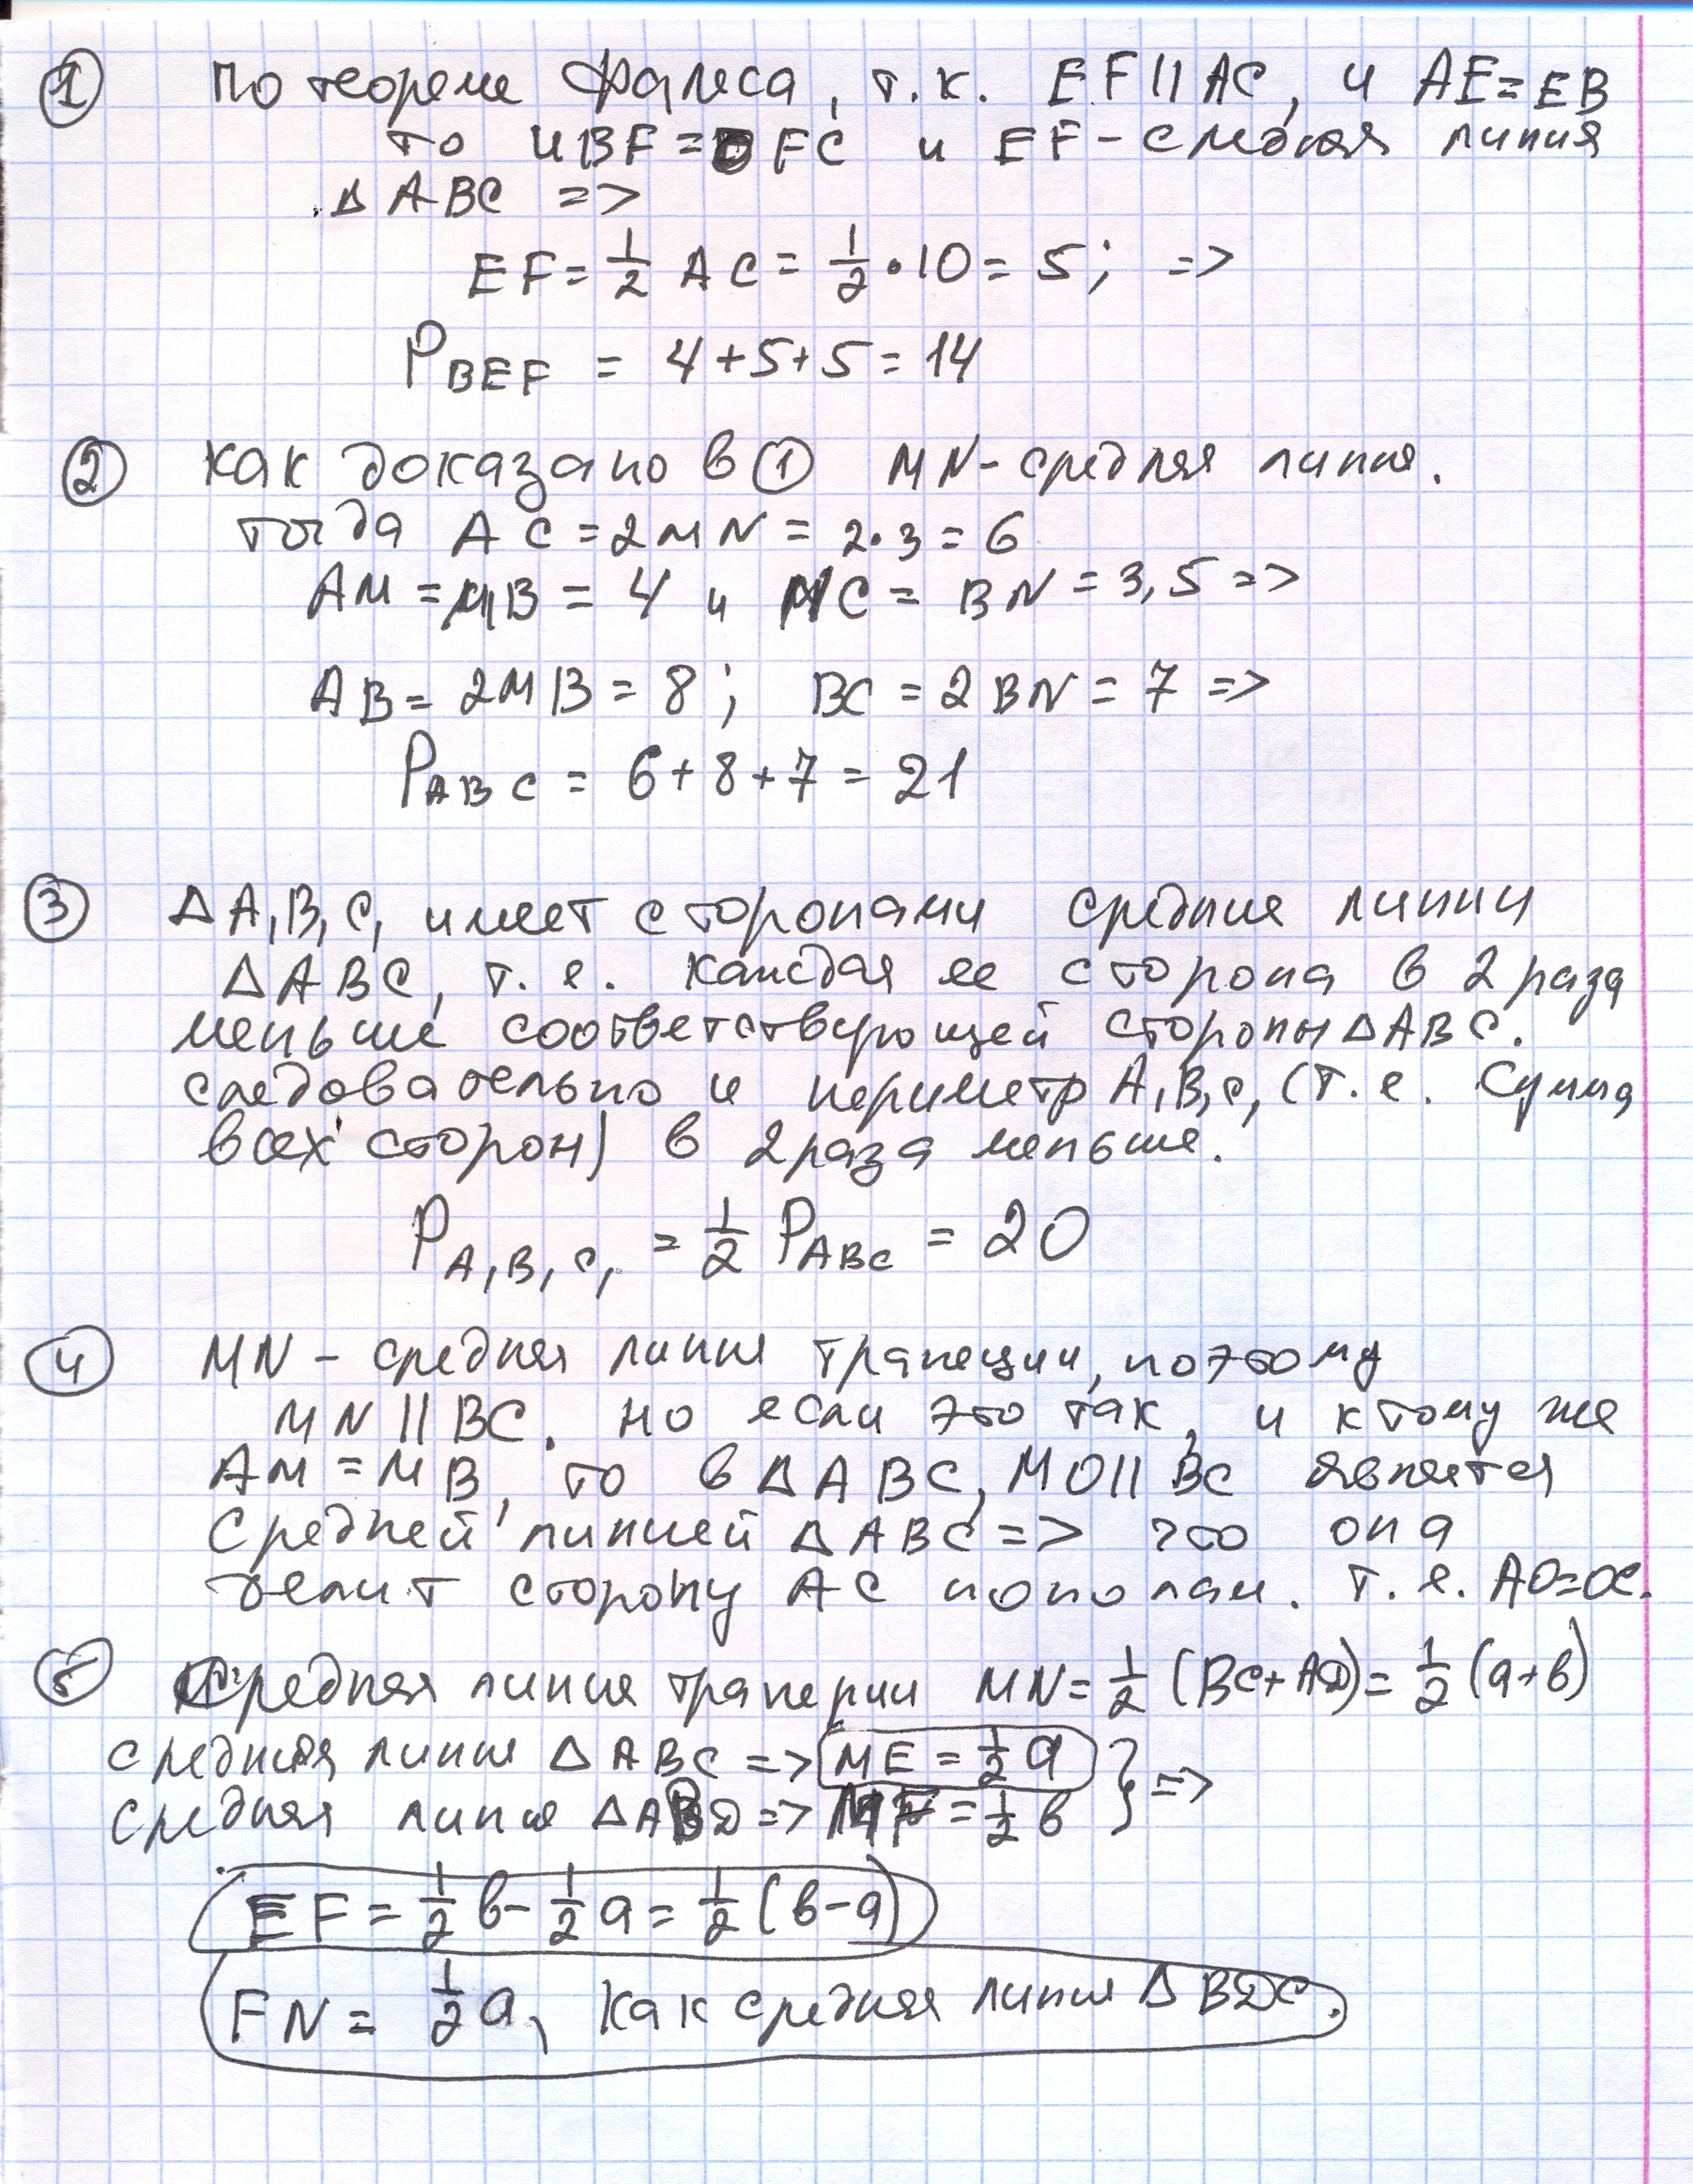 ① По теореме Фалеса, т.к. EF || AC, и AE = EB
то и BF = FC и EF - средняя линия
Δ ABC =>
EF = 1/2 AC = 1/2 · 10 = 5; =>
P_BEF = 4 + 5 + 5 = 14
② Как доказано в ① MN - средняя линия.
тогда AC = 2MN = 2·3 = 6
AM = MB = 4 и NC = BN = 3,5 =>
AB = 2MB = 8; BC = 2BN = 7 =>
P_ABC = 6 + 8 + 7 = 21
③ Δ A₁B₁C₁ имеет сторонами средние линии
Δ ABC, т.е. каждая ее сторона в 2 раза
меньше соответствующей стороны Δ ABC.
следовательно и периметр A₁B₁C₁ (т.е. сумма
всех сторон) в 2 раза меньше.
P_A₁B₁C₁ = 1/2 P_ABC = 20
④ MN - средняя линия трапеции, поэтому
MN || BC. но если это так, и к тому же
AM = MB, то в Δ ABC, MO || BC является
средней линией Δ ABC => что она
делит сторону AC пополам. т.е. AO = OC.
⑤ Средняя линия трапеции MN = 1/2 (BC + AD) = 1/2 (a + b)
средняя линия Δ ABC => ME = 1/2 a } =>
средняя линия Δ ABD => MF = 1/2 b
EF = 1/2 b - 1/2 a = 1/2 (b - a)
FN = 1/2 a, как средняя линия Δ BDC.